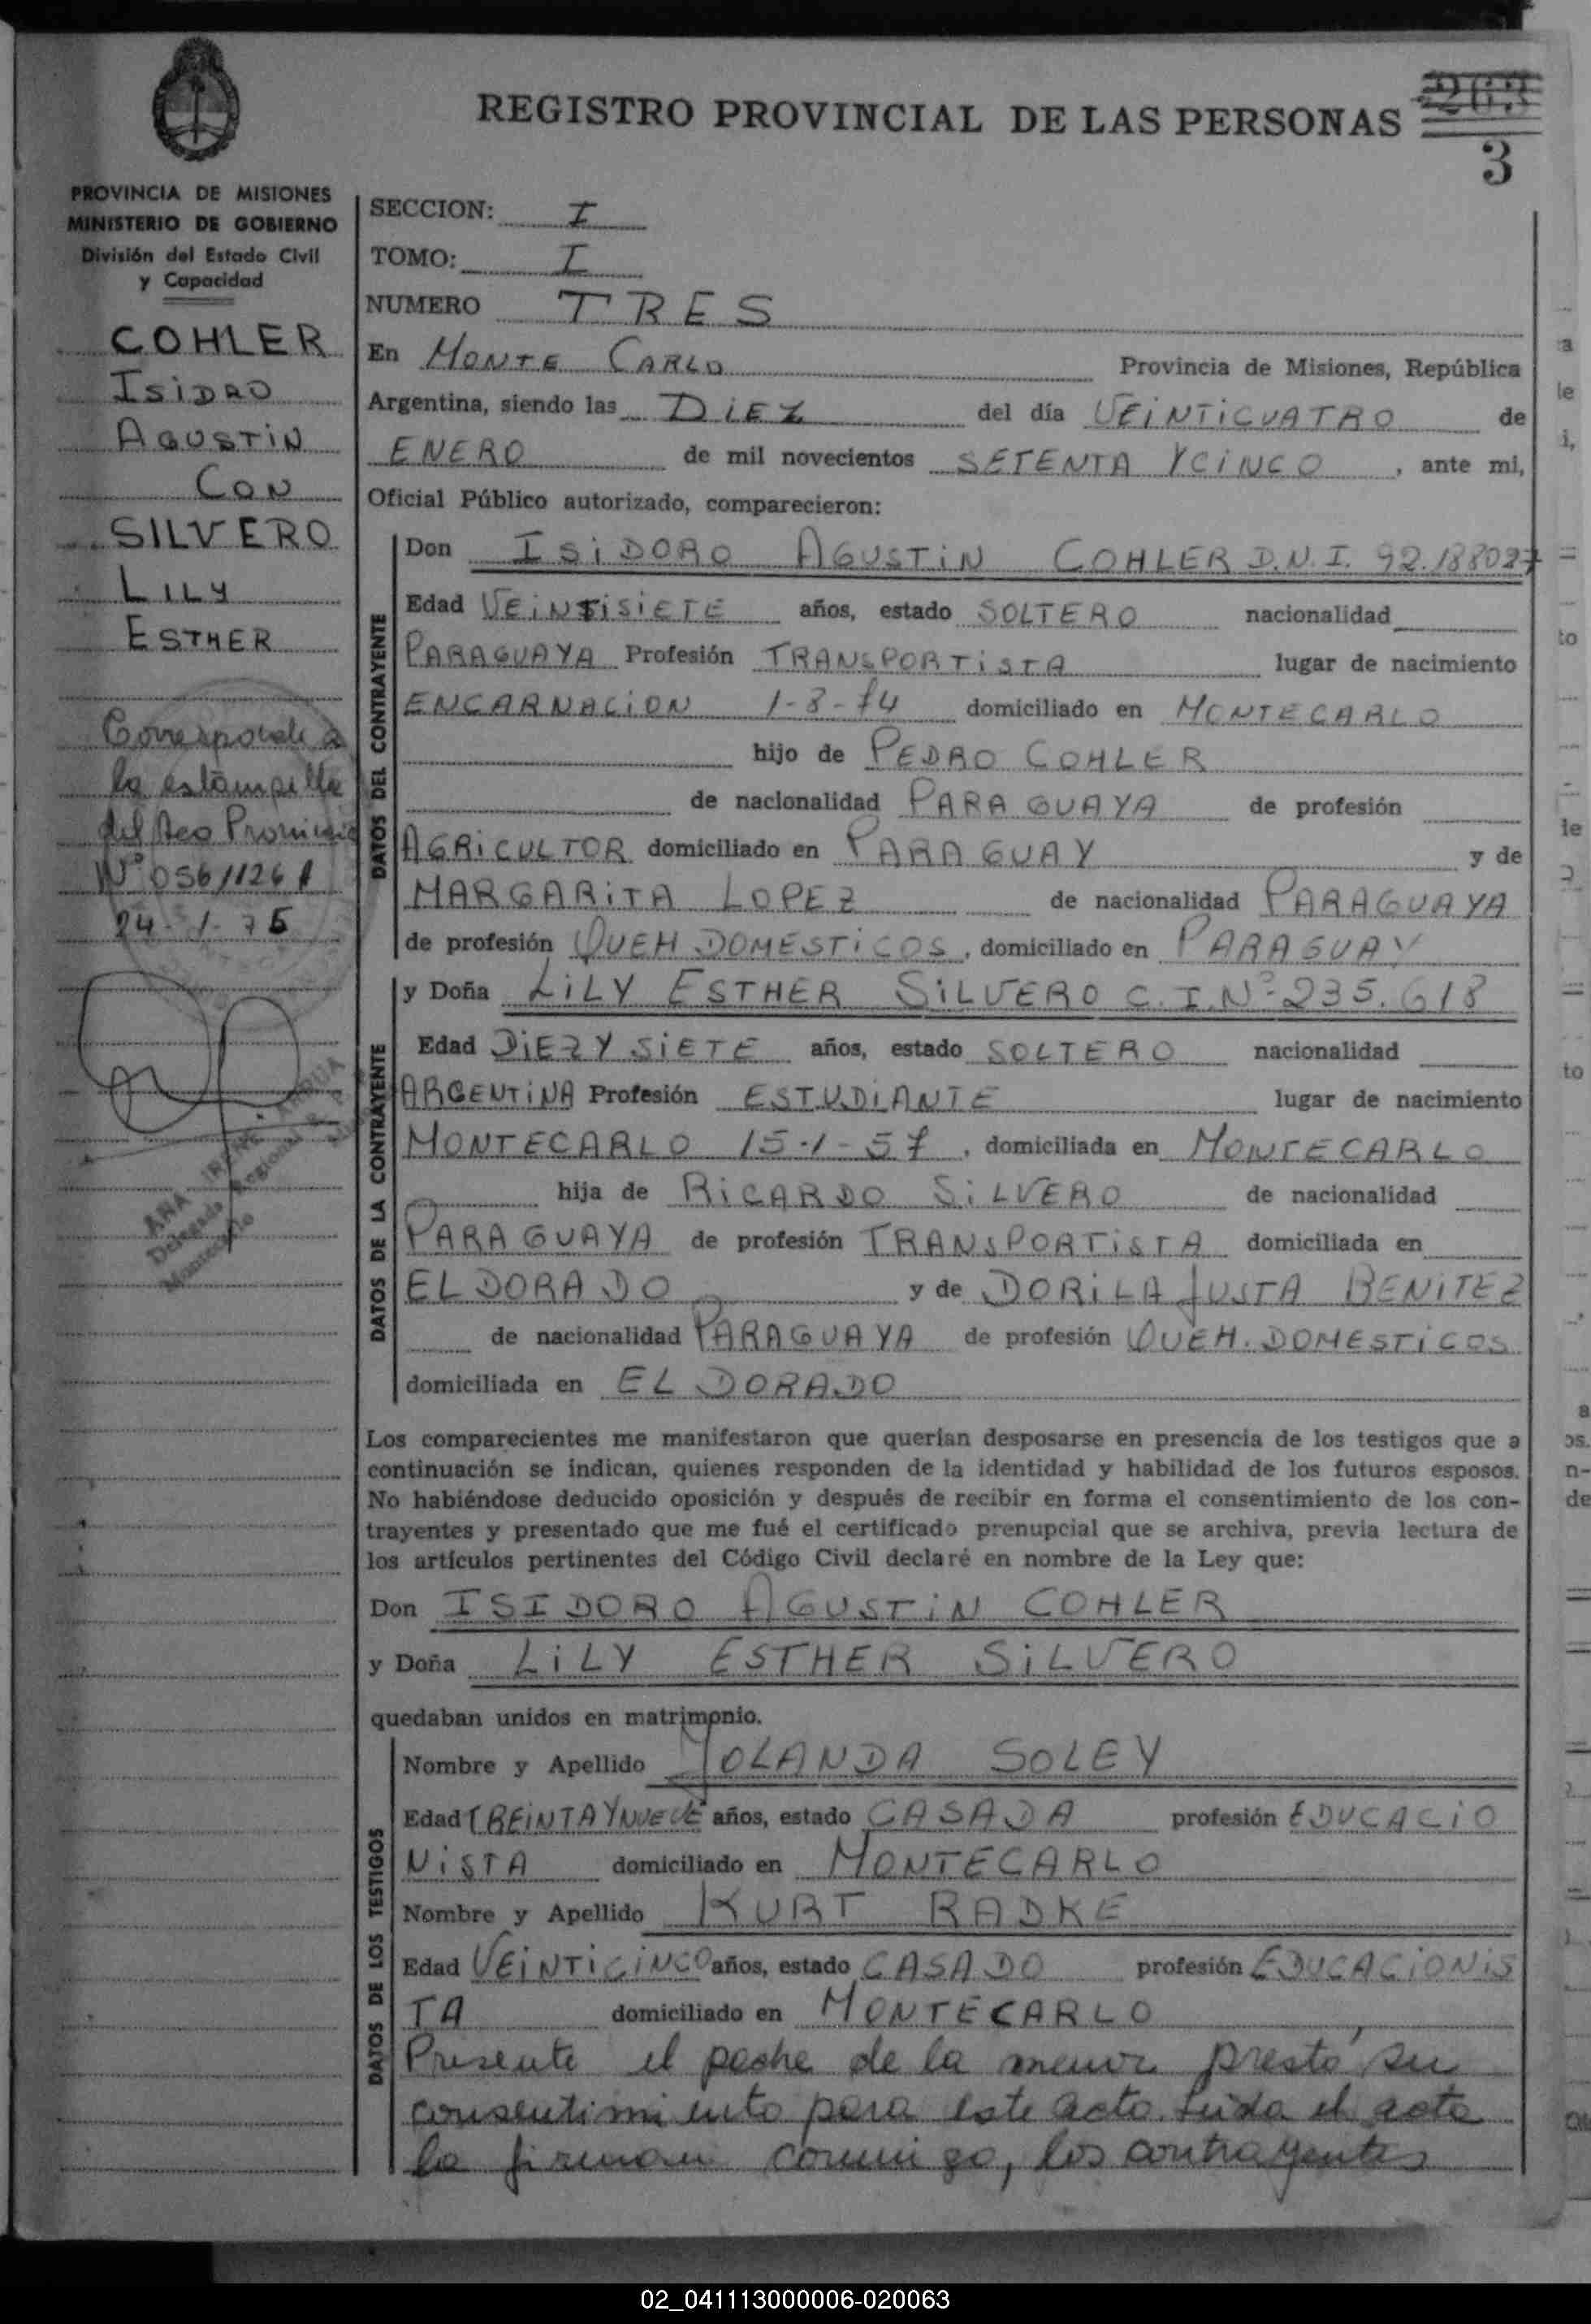 REGISTRO PROVINCIAL DE LAS PERSONAS 263
3
PROVINCIA DE MISIONES
MINISTERIO DE GOBIERNO
División del Estado Civil
y Capacidad
COHLER
ISIDRO
AGUSTIN
CON
SILVERO
LILY
ESTHER
Corresponde a
la estampilla
del Aeo
Nº 0561126 A
24-1-75
ANA IRENE
Delegada Regional R. P.
Montecarlo
SECCION: I
TOMO: I
NUMERO TRES
En MONTE CARLO Provincia de Misiones, República
Argentina, siendo las DIEZ del día VEINTICUATRO de
ENERO de mil novecientos SETENTA Y CINCO, ante mi,
Oficial Público autorizado, comparecieron:
DATOS DEL CONTRAYENTE
Don ISIDORO AGUSTIN COHLER D.N.I. 92.188027
Edad VEINTISIETE años, estado SOLTERO nacionalidad
PARAGUAYA Profesión TRANSPORTISTA lugar de nacimiento
ENCARNACION 1-8-74 domiciliado en MONTECARLO
hijo de PEDRO COHLER
de nacionalidad PARAGUAYA de profesión
AGRICULTOR domiciliado en PARAGUAY y de
MARGARITA LOPEZ de nacionalidad PARAGUAYA
de profesión QUEH DOMESTICOS, domiciliado en PARAGUAY
DATOS DE LA CONTRAYENTE
y Doña LILY ESTHER SILVERO C.I.Nº 235.618
Edad DIEZ Y SIETE años, estado SOLTERO nacionalidad
ARGENTINA Profesión ESTUDIANTE lugar de nacimiento
MONTECARLO 15-1-57, domiciliada en MONTECARLO
hija de RICARDO SILVERO de nacionalidad
PARAGUAYA de profesión TRANSPORTISTA domiciliada en
ELDORADO y de DORILA JUSTA BENITEZ
de nacionalidad PARAGUAYA de profesión QUEH. DOMESTICOS
domiciliada en EL DORADO
Los comparecientes me manifestaron que querían desposarse en presencia de los testigos que a
continuación se indican, quienes responden de la identidad y habilidad de los futuros esposos.
No habiéndose deducido oposición y después de recibir en forma el consentimiento de los con-
trayentes y presentado que me fué el certificado prenupcial que se archiva, previa lectura de
los artículos pertinentes del Código Civil declaré en nombre de la Ley que:
Don ISIDORO AGUSTIN COHLER
y Doña LILY ESTHER SILVERO
quedaban unidos en matrimonio.
DATOS DE LOS TESTIGOS
Nombre y Apellido YOLANDA SOLEY
Edad TREINTA Y NUEVE años, estado CASADA profesión EDUCACIO
NISTA domiciliado en MONTECARLO
Nombre y Apellido KURT RADKE
Edad VEINTICINCO años, estado CASADO profesión EDUCACIONIS
TA domiciliado en MONTECARLO
Presente el padre de la menor prestó su
consentimiento para este acto. Leida el acta
la firman conmigo, los contrayentes
02_041113000006-020063